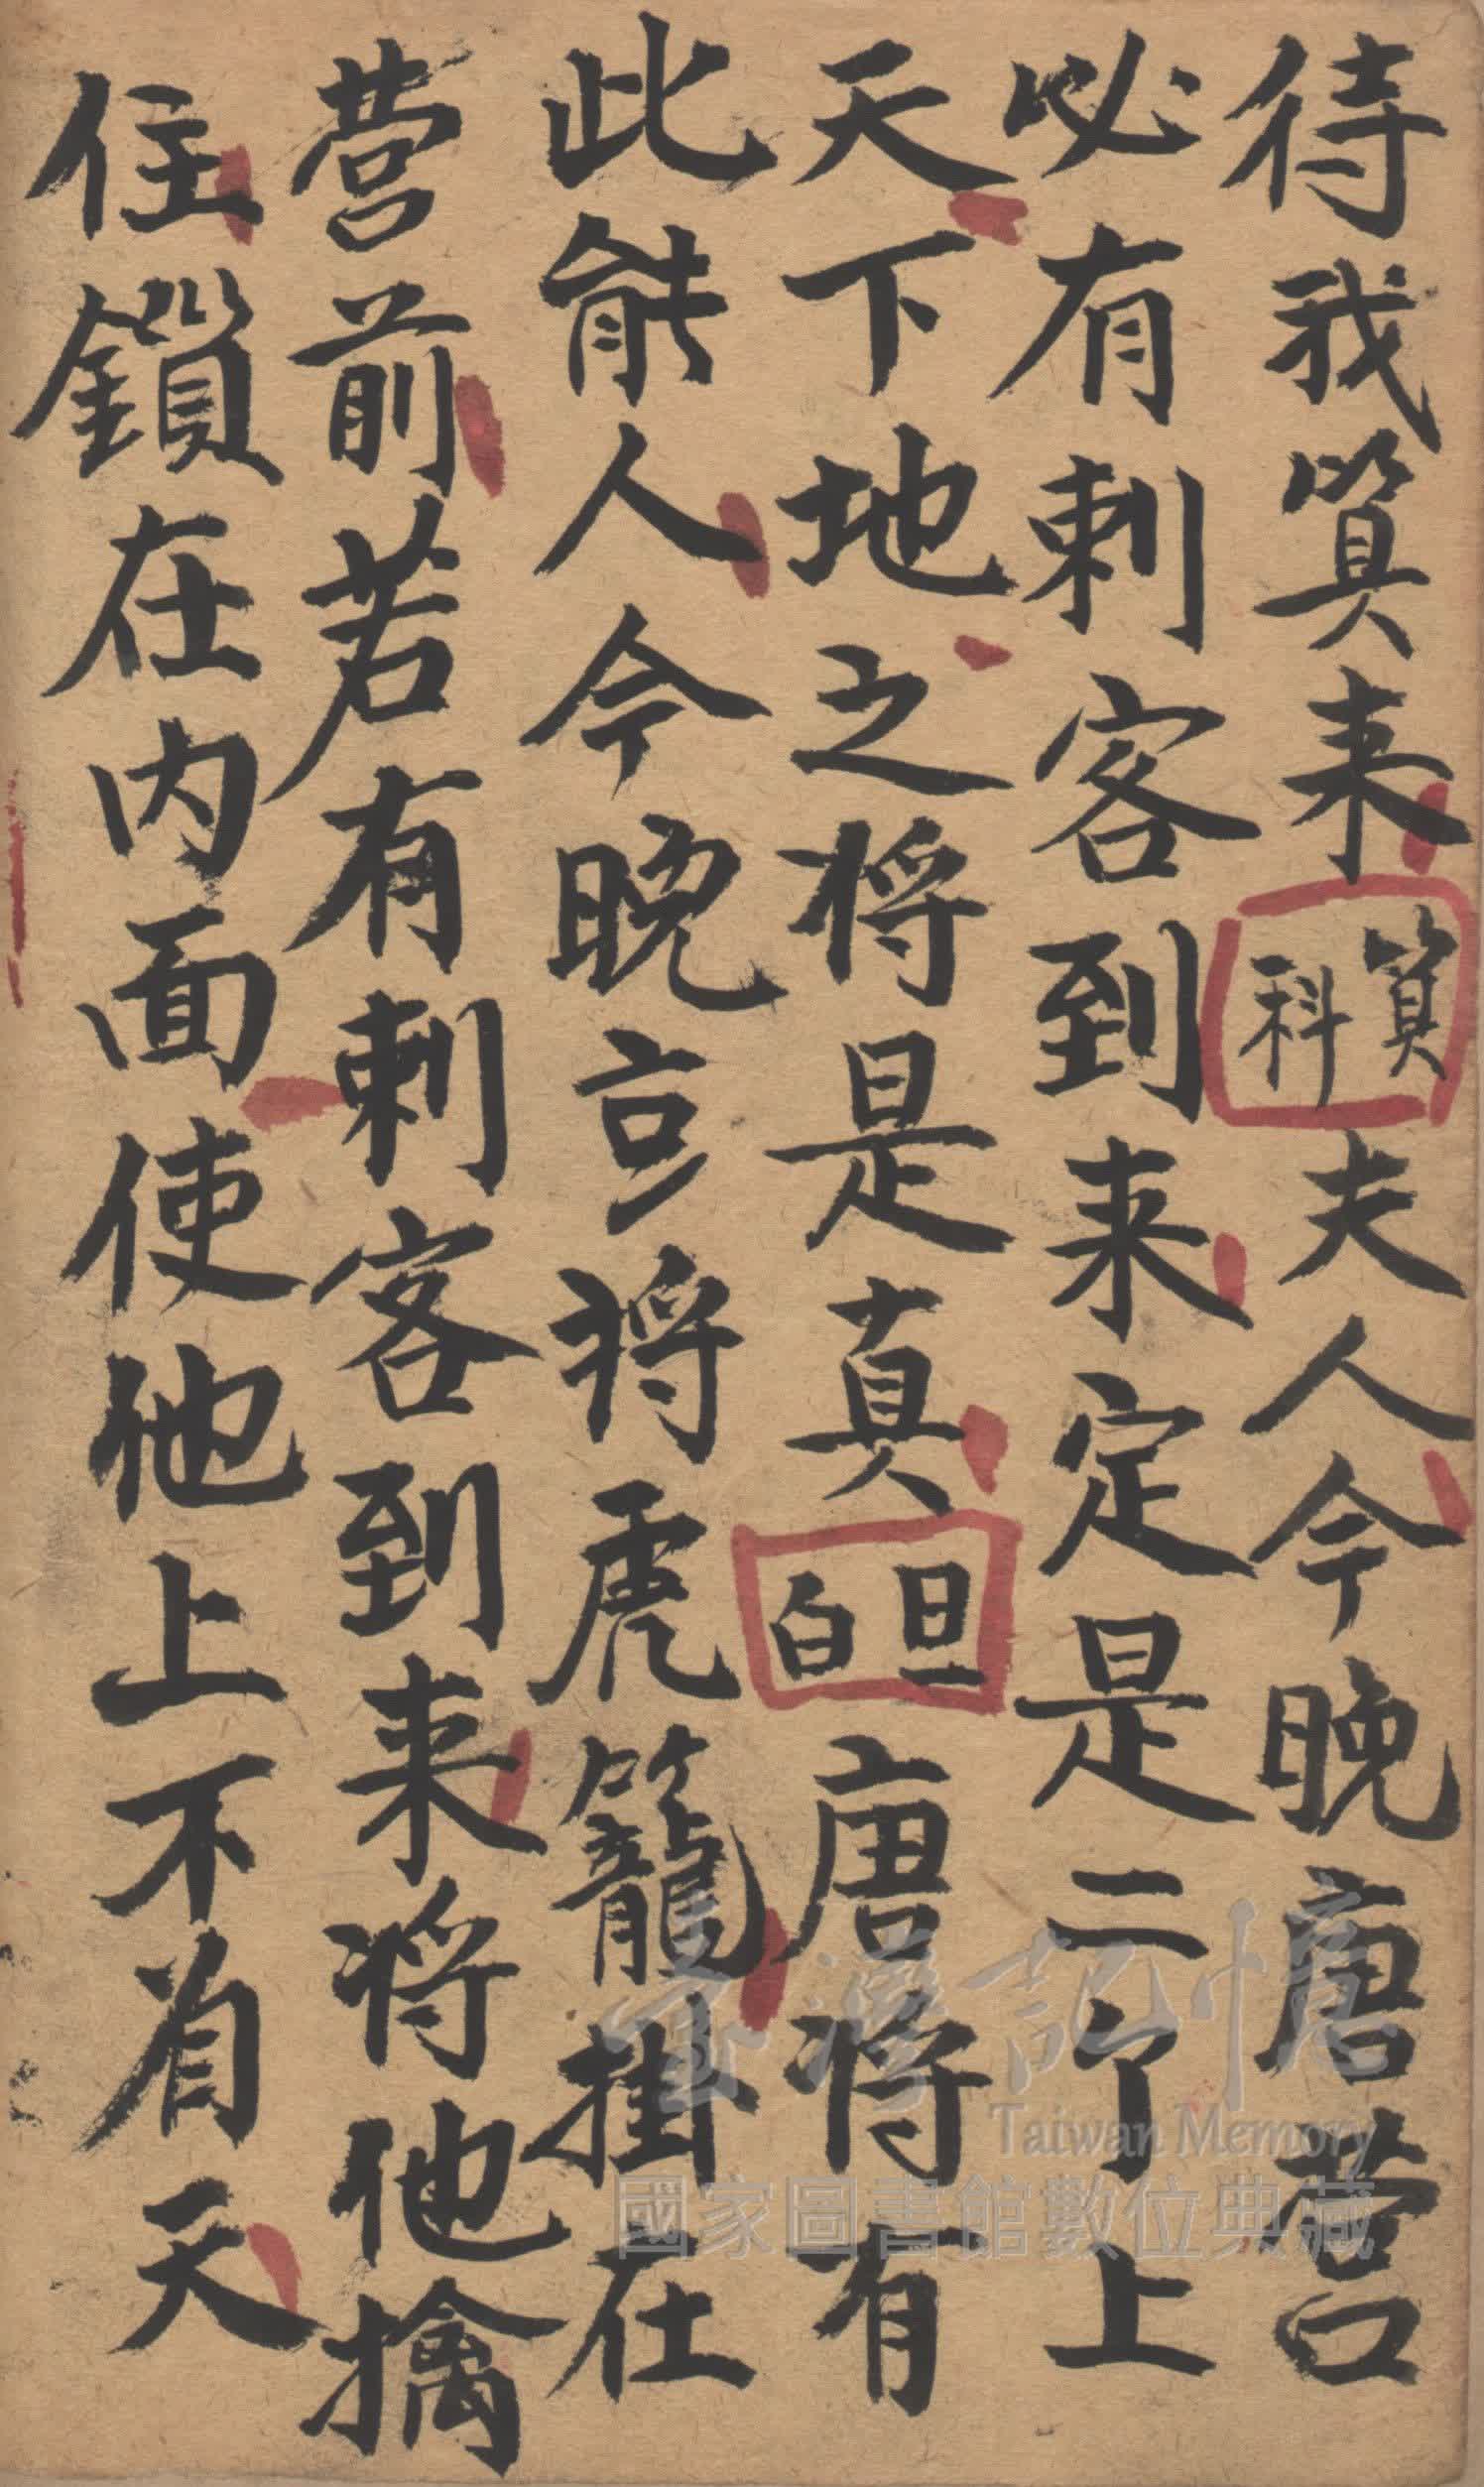 待我算来算科夫人今晚唐营
必有刺客到来定是二个上
天下地之将是真旦白唐将有
此能人今晚言将虎籠掛在
营前若有刺客到来将他擒
住鎖在内面使他上不着天
臺灣記憶
Taiwan Memory
國家圖書館數位典藏